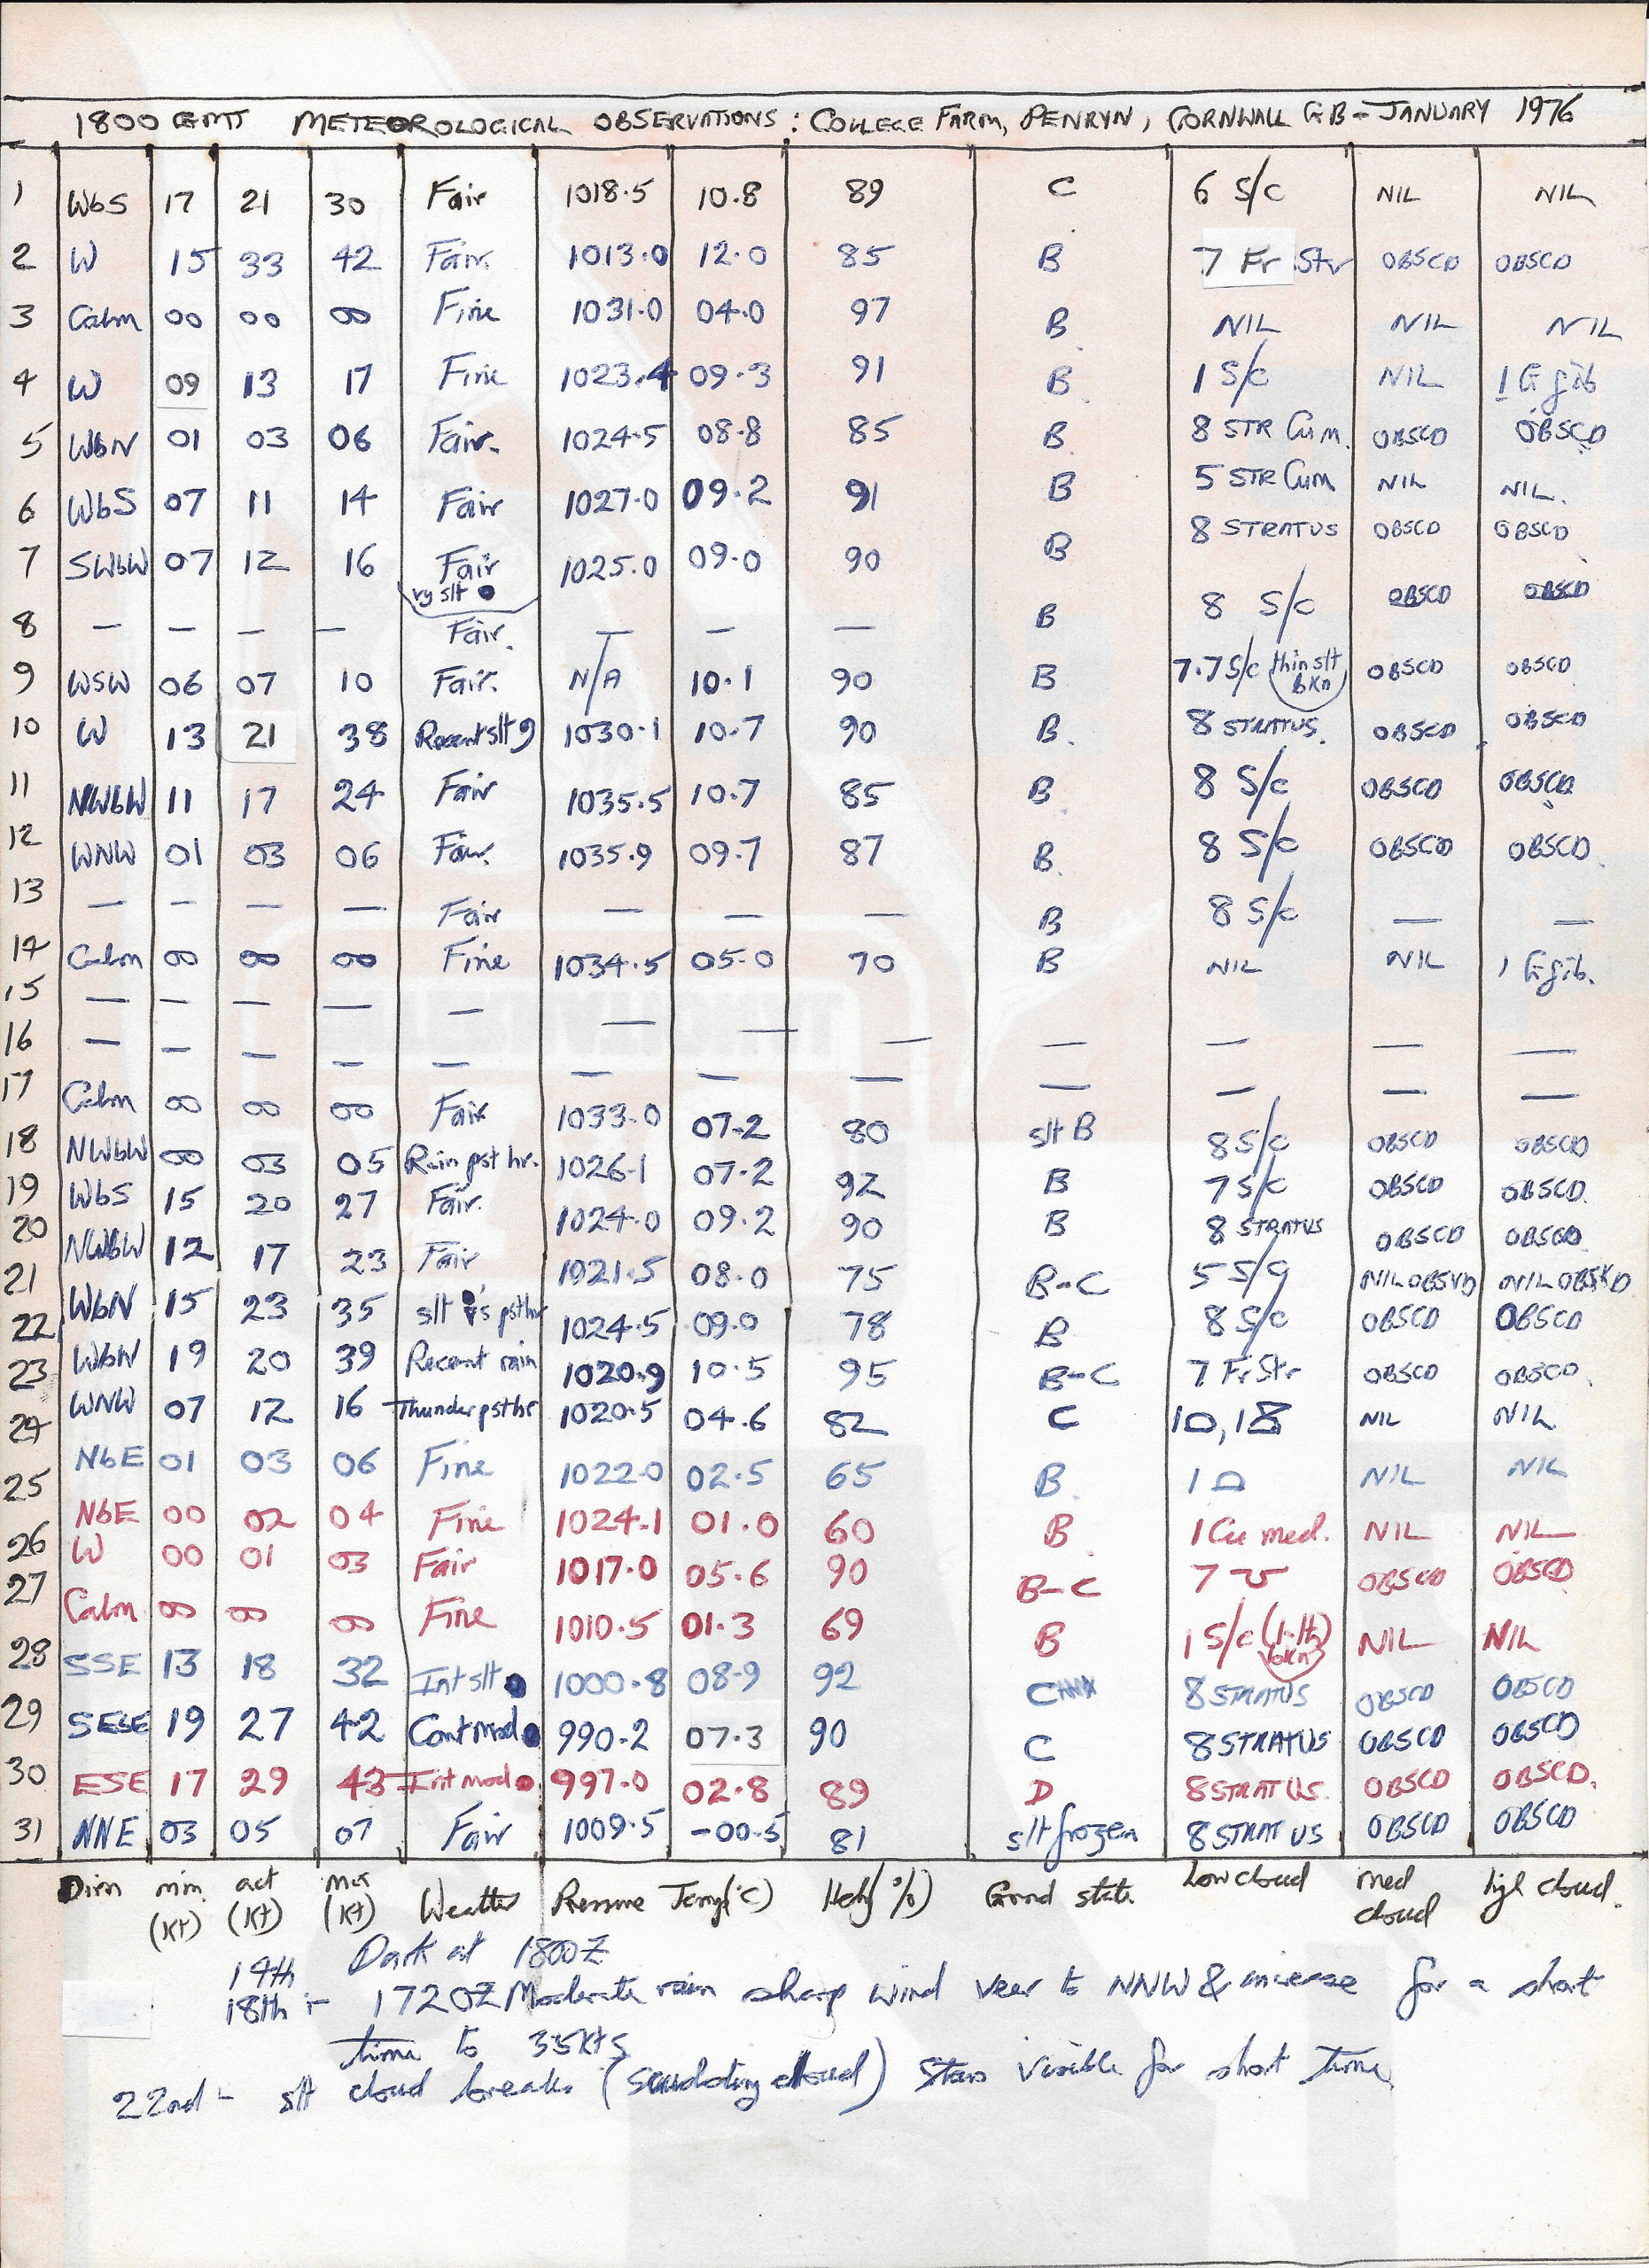 1800 GMT METEOROLOGICAL OBSERVATIONS : COLLEGE FARM, PENRYN, CORNWALL GB - JANUARY 1976
1 WbS 17 21 30 Fair 1018.5 10.8 89 C 6 S/c NIL NIL
2 W 15 33 42 Fair. 1013.0 12.0 85 B 7 Fr Str OBSCD OBSCD
3 Calm 00 00 00 Fine 1031.0 04.0 97 B NIL NIL NIL
4 W 09 13 17 Fine 1023.4 09.3 91 B 1 S/c NIL 1
5 WbN 01 03 06 Fair. 1024.5 08.8 85 B 8 STR Cum. OBSCD OBSCD
6 WbS 07 11 14 Fair 1027.0 09.2 91 B 5 STR Cum NIL NIL.
7 SWbW 07 12 16 Fair 1025.0 09.0 90 B 8 STRATUS OBSCD OBSCD
vy slt ●
8 — — — — Fair. — — — B 8 S/c OBSCD OBSCD
9 WSW 06 07 10 Fair. N/A 10.1 90 B 7.7 S/c (thin slt bkn) OBSCD OBSCD
10 W 13 21 38 Recent slt 9 1030.1 10.7 90 B. 8 STRATUS. OBSCD OBSCD
11 NWbW 11 17 24 Fair 1035.5 10.7 85 B 8 S/c OBSCD OBSCD
12 WNW 01 03 06 Fair. 1035.9 09.7 87 B 8 S/c OBSCD OBSCD
13 — — — — Fair — — — B 8 S/c — —
14 Calm 00 00 00 Fine 1034.5 05.0 70 B NIL NIL 1
15 — — — — — — — — — — — —
16 — — — — — — — — — — —
17 Calm 00 00 00 Fair 1033.0 07.2 80 slt B 8 S/c OBSCD OBSCD
18 NWbW 00 03 05 Rain pst hr. 1026.1 07.2 92 B 7 S/c OBSCD OBSCD.
19 WbS 15 20 27 Fair. 1024.0 09.2 90 B 8 STRATUS OBSCD OBSCD
20 NWbW 12 17 23 Fair 1021.5 08.0 75 B-C 5 S/c NIL OBSVD NIL
21 WbN 15 23 35 slt pst hr 1024.5 09.0 78 B 8 S/c OBSCD OBSCD
22 WbW 19 20 39 Recent rain 1020.9 10.5 95 B-C 7 Fr Str OBSCD OBSCD.
23 WNW 07 12 16 Thunder pst hr 1020.5 04.6 82 C NIL NIL
24 NbE 01 03 06 Fine 1022.0 02.5 65 B 1 NIL NIL
25 NbE 00 02 04 Fine 1024.1 01.0 60 B 1 Cu med. NIL NIL
26 W 00 01 03 Fair 1017.0 05.6 90 B-C 7 OBSCD OBSCD
27 Calm 00 00 00 Fine 1010.5 01.3 69 B 1 S/c NIL NIL
28 SSE 13 18 32 Int slt ● 1000.8 08.9 92 C 8 STRATUS OBSCD OBSCD
29 SEbE 19 27 42 Cont mod ● 990.2 07.3 90 C 8 STRATUS OBSCD OBSCD
30 ESE 17 29 43 Int mod ● 997.0 02.8 89 D 8 STRATUS. OBSCD OBSCD.
31 NNE 03 05 07 Fair 1009.5 -00.5 81 slt frozen 8 STRATUS OBSCD OBSCD
Dirn min (Kt) act (Kt) max (Kt) Weather Pressure Temp(°C) (%) Grnd state Low cloud med cloud high cloud.
19th Dark at 1800Z
18th :- 1720Z Moderate rain sharp wind veer to NNW & increase for a short
time to 35 Kts
22nd - slt cloud breaks (scudding cloud) Stars visible for short time